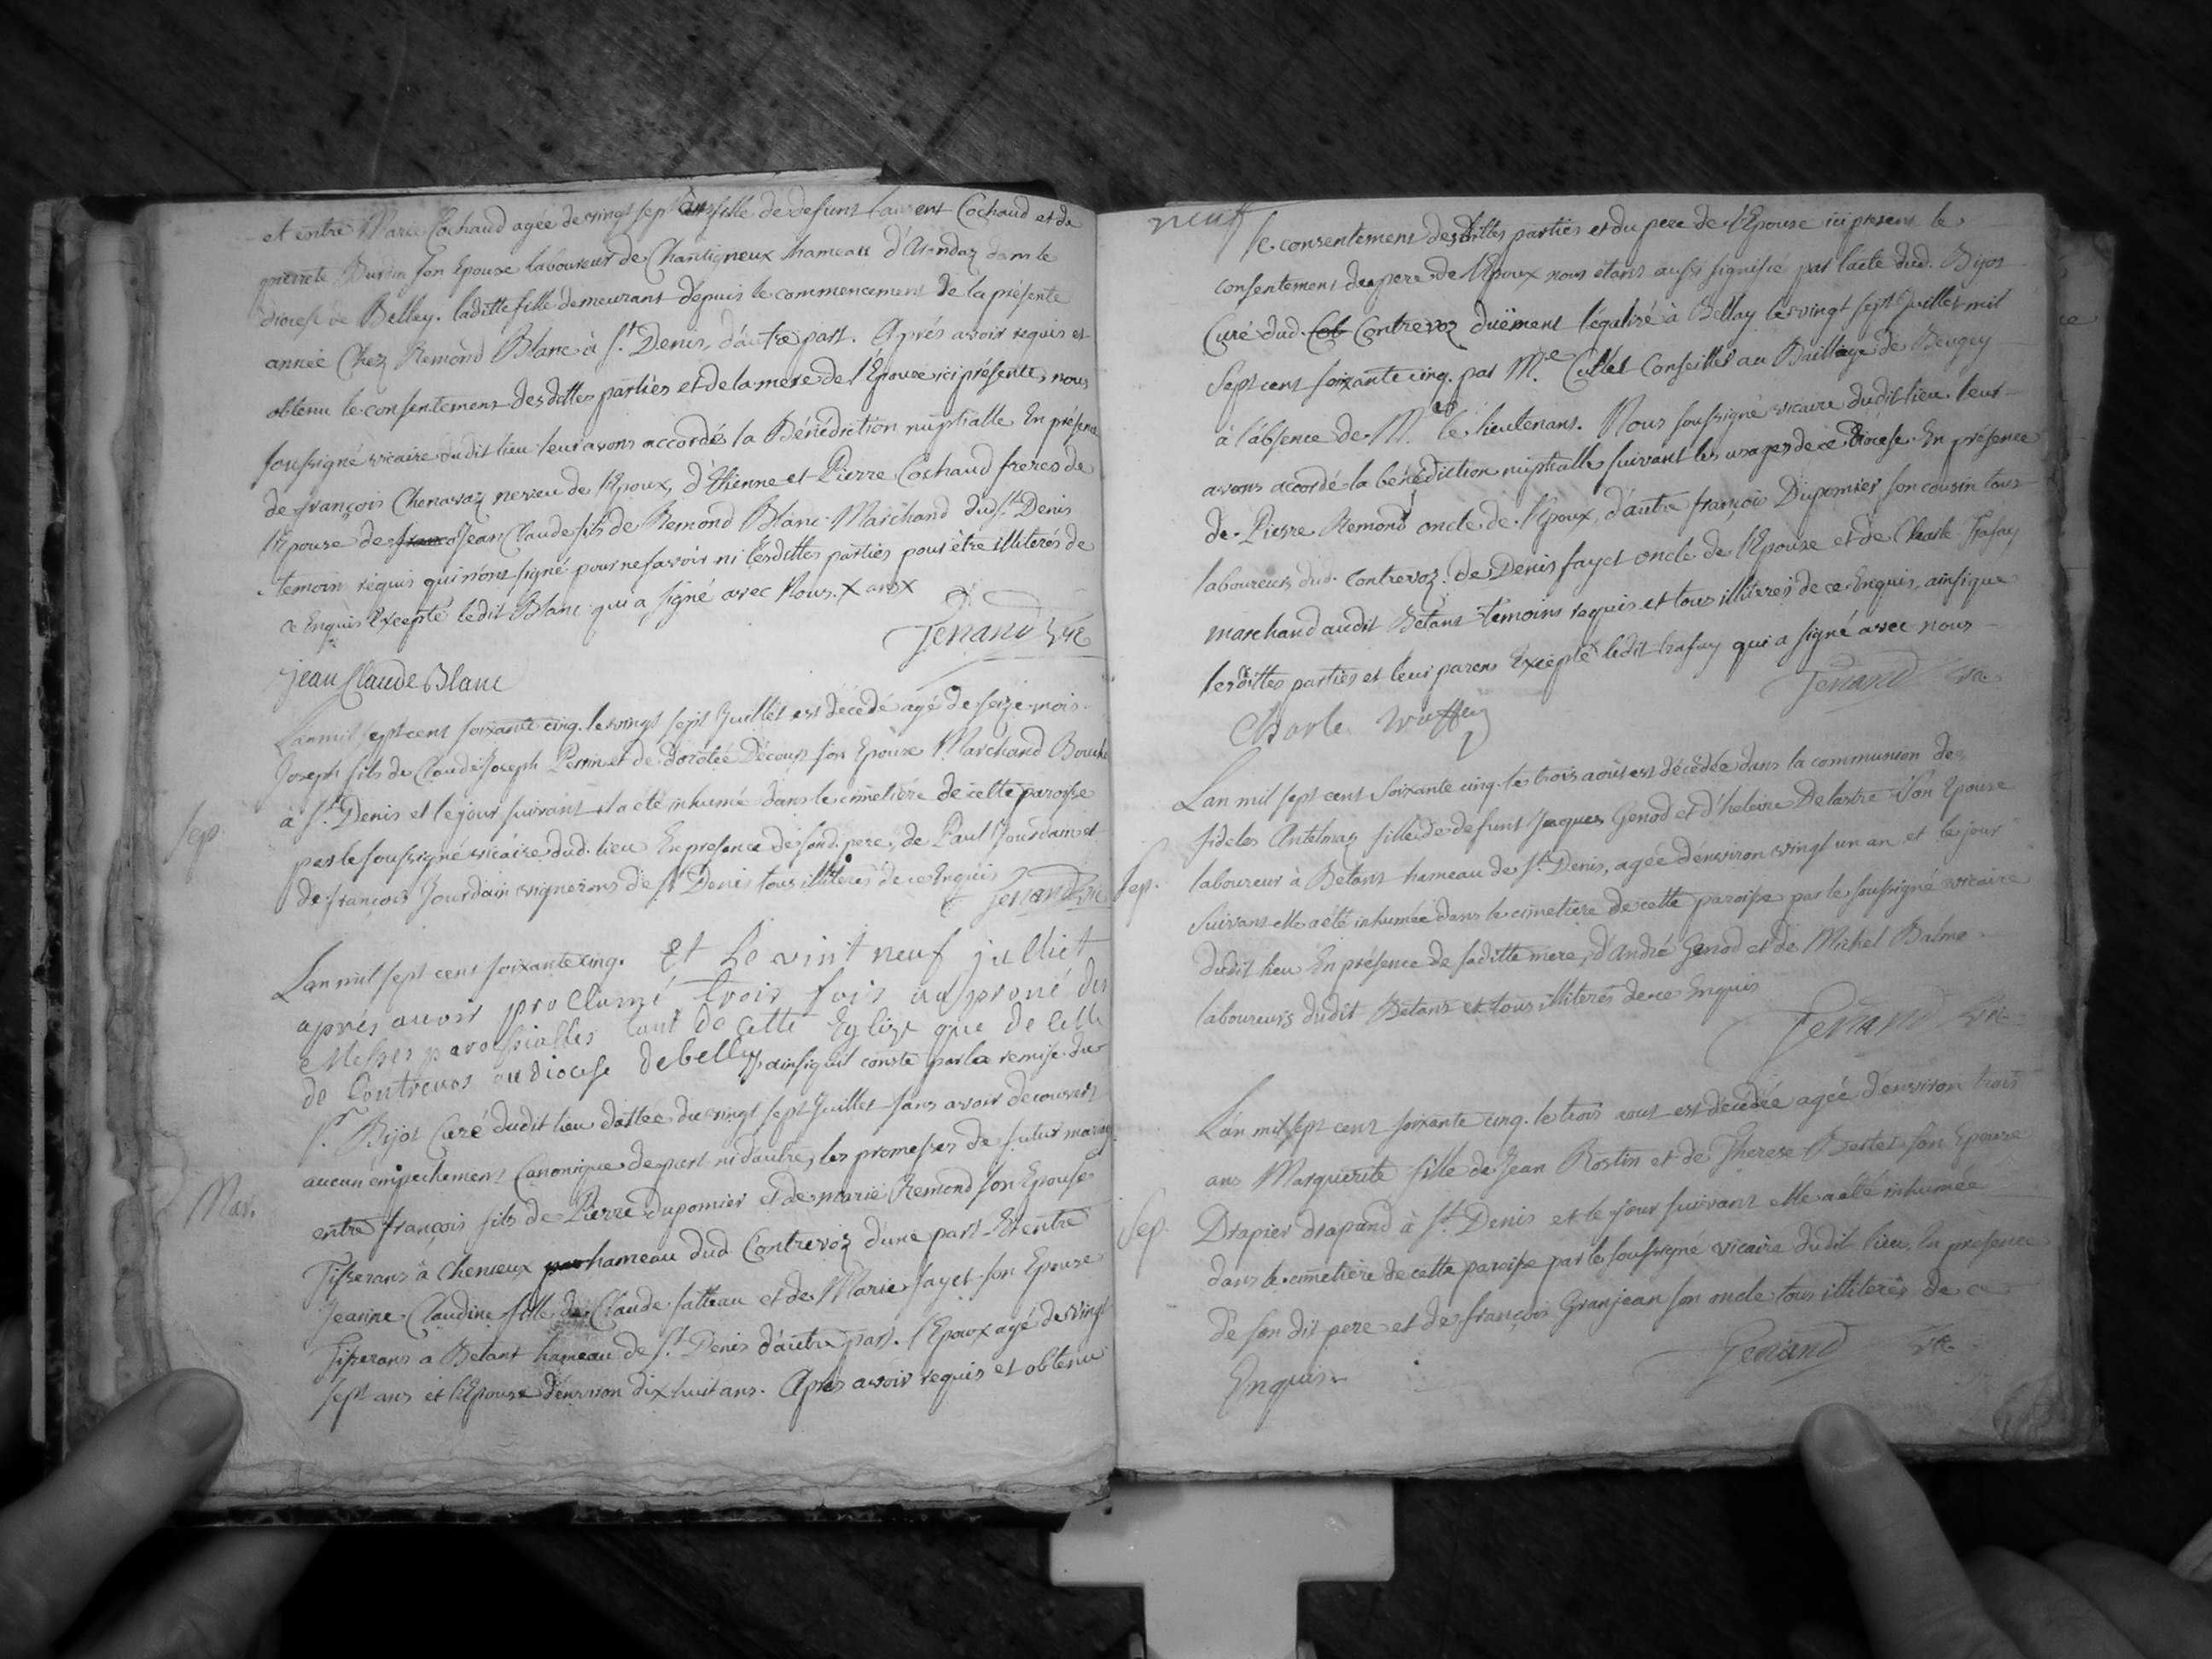 et entre Marie Cochaud agée de vingt sept ans fille de defunt Laurent Cochaud et de
pierrete Burdin son Epouse laboureur de Chantigneux hameau d'Arandaz dans le
diocese de Belley. laditte fille demeurant depuis le commencement de la présente
année Chez Remond Blanc à St. Denis, d'autre part. Aprés avoir requis et
obtenu le consentement desdittes parties et de la mere de l'Epouse ici présente, nous
soussigné vicaire dudit lieu leur avons accordés la Bénédiction nuptialle En présence
de françois Chenavaz neveu de l'Epoux, d'Etienne et Pierre Cochaud freres de
l'Epouse de Jean Claude fils de Remond Blanc Marchand dud. St. Denis
temoins requis qui n'ont signé pour ne savoir ni lesdittes parties pour être illiterés de
ce Enquis Excepté ledit Blanc qui a signé avec Nous.
Jenand vic
Jean Claude Blanc
Lan mil sept cent soixante cinq. le vingt sept Juillet est décédé agé de seize mois
Joseph fils de Claude Joseph Perrin et de dorotée Découp son Epouse Marchand Bouche
Sep.
à St. Denis et le jour suivant il a été inhumé dans le cimetiére de cette paroisse
par le soussigné vicaire dud. lieu En presence de sond. pere, de Paul Jourdain et
de françois Jourdain vignerons de St. Denis tous illiterés de ce Enquis
Jenand vic
Lan mil sept cent soixante cinq. Et Le vint neuf julliet
aprés auoir proclamé trois fois au prone des
Messes paroissialles tant de cette Eglise que de celle
de Contreuos au diocese de belley, ainsi quil conste par la remise du
Sr. Bijot Curé dudit lieu dattée du vingt sept Juillet sans avoir découvert
aucun émpechement Canonique de part ni d'autre, les promesses de futur mariag
Mar.
entre françois fils de Pierre dupomier et de marie Remond son Epouse
Tisserans à Chemeux hameau dud Contrevoz d'une part Et entre
Jeanne Claudine fille de Claude fatteau et de Marie fayet son Epouse
Tisserans a Betant hameau de St. Denis d'autre part. l'Epoux agé de vingt
sept ans et l'Epouse d'environ dix huit ans. Aprés avoir requis et obtenu
neuf
le consentement desdittes parties et du pere de l'Epouse ici present le
consentement du pere de l'Epoux nous étant aussi signifié par l'acte dud. Bijot
Curé dud. Contrevoz duëment légalisé à Bellay le vingt sept Juillet mil
Sept cent soixante cinq. par Me. Cullet Conseiller au Bailliage de Beugey
à l'absence de M. le lieutenant. Nous soussigné vicaire dudit lieu leur
avons accordé la bénédiction nuptialle suivant les usages de ce diocese En présence
de Pierre Remond oncle de l'Epoux, d'autre françois Dupomier son cousin tous
laboureurs dud. Contrevoz. de Denis fayet oncle de l'Epouse et de Charle Trafay
marchand audit Betant temoins requis et tous illiterés de ce Enquis, ainsi que
lesdittes parties et leurs parens Excepté ledit trafay qui a signé avec nous
Jenand vic
Charle
Lan mil sept cent soixante cinq. le trois août est décédée dans la communion des
fideles Antelmaz fille de defunt Jaques Genod et d'heleine Delastre son Epouse
Sep.
laboureur à Betant hameau de St. Denis, agée d'environ vingt un an et le jour
suivant elle a été inhumée dans le cimetiere de cette paroisse par le soussigné vicaire
dudit lieu En présence de saditte mere, d'André Genod et de Michel Balme
laboureurs dudit Betant et tous illiterés de ce Enquis
Jenand vic
Lan mil sept cent soixante cinq. le trois aout est décédée agée d'environ trois
ans Marguerite fille de Jean Rostin et de Therese Bertet son Epouse
Sep.
Drapier drapand à St. Denis et le jour suivant elle a été inhumée
dans le cimetiére de cette paroisse par le soussigné vicaire dudit lieu, En présence
de son dit pere et de françois Granjean son oncle tous illiterés de ce
Enquis
Jenand vic